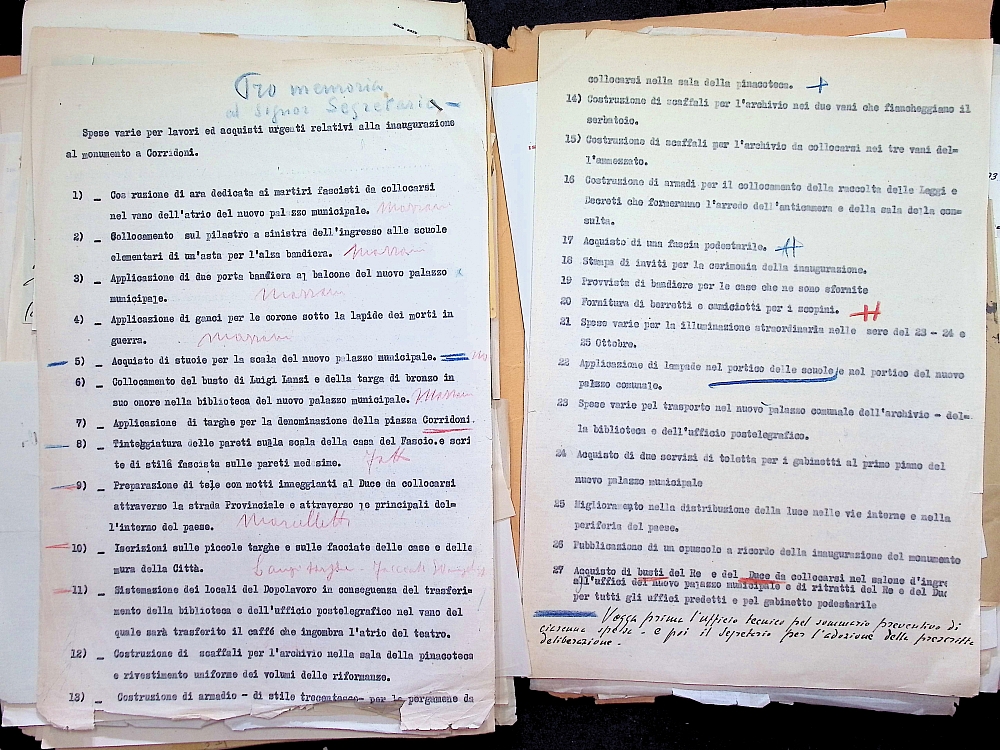 Pro memoria
al Signor Segretario —
Spese varie per lavori ed acquisti urgenti relativi alla inaugurazione
al monumento a Corridoni.
1) _ Cos ruzione di ara dedicata ai martiri fascisti da collocarsi
nel vano dell'atrio del nuovo palazzo municipale.
2) _ Collocamento sul pilastro a sinistra dell'ingresso alle scuole
elementari di un'asta per l'alza bandiera.
3) _ Applicazione di due porta bandiera al balcone del nuovo palazzo
municipale.
4) _ Applicazione di ganci per le corone sotto la lapide dei morti in
guerra.
5) _ Acquisto di stuoie per la scala del nuovo palazzo municipale.
6) _ Collocamento del busto di Luigi Lanzi e della targa di bronzo in
suo onore nella biblioteca del nuovo palazzo municipale.
7) _ Applicazione di targhe per la denominazione della piazza Corridoni.
8) _ Tinteggiatura delle pareti sulla scala della casa del Fascio.e scri
te di stile fascista sulle pareti med sime.
9) _ Preparazione di tele con motti inneggianti al Duce da collocarsi
attraverso la strada Provinciale e attraverso le principali del=
l'interno del paese.
10) _ Iscrizioni sulle piccole targhe e sulle facciate delle case e delle
mura della Città.
11) _ Sistemazione dei locali del Dopolavoro in conseguenza del trasferi=
mento della biblioteca e dell'ufficio postelegrafico nel vano del
quale sarà trasferito il caffé che ingombra l'atrio del teatro.
12) _ Costruzione di scaffali per l'archivio nella sala della pinacoteca
e rivestimento uniforme dei volumi delle riformanze.
13) _ Costruzione di armadio - di stile trecentesco- per le pergamene da
collocarsi nella sala della pinacoteca. +
14) Costruzione di scaffali per l'archivio nei due vani che fiancheggiano il
serbatoio.
15) Costruzione di scaffali per l'archivio da collocarsi nei tre vani del=
l'ammezzato.
16 Costruzione di armadi per il collocamento della raccolta delle Leggi e
Decreti che formeranno l'arredo dell'anticamera e della sala della con=
sulta.
17 Acquisto di una fascia podestarile.
18 Stampa di inviti per la cerimonia della inaugurazione.
19 Provvista di bandiere per le case che ne sono sfornite
20 Fornitura di berretti e camiciotti per i scopini.
21 Spese varie per la illuminazione straordinaria nelle sere del 23 - 24 e
25 Ottobre.
22 Applicazione di lampade nel portico delle scuole e nel portico del nuovo
palazzo comunale.
23 Spese varie pel trasporto nel nuovo palazzo comunale dell'archivio - del=
la biblioteca e dell'ufficio postelegrafico.
24 Acquisto di due servizi di toletta per i gabinetti al primo piano del
nuovo palazzo municipale
25 Miglioramento nella distribuzione della luce nelle vie interne e nella
periferia del paese.
26 Pubblicazione di un opuscolo a ricordo della inaugurazione del monumento
27 Acquisto di busti del Re e del Duce da collocarsi nel salone d'ingre
all'uffici del nuovo palazzo municipale e di ritratti del Re e del Duc
per tutti gli uffici predetti e pel gabinetto podestarile
Vegga prima l'ufficio tecnico pel sommario preventivo di
ciascuna spesa - e poi il Segretario per l'adozione delle prescritte
deliberazione -